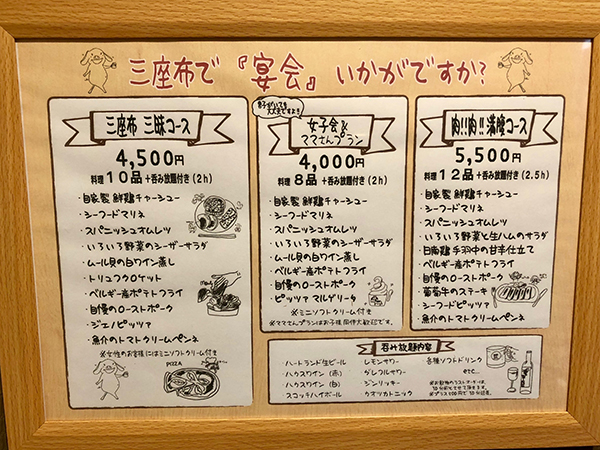 三座布で『宴会』いかがですか？
三座布 三昧コース
4,500円
料理 10品 +呑み放題付き (2h)
・自家製 鮮鶏チャーシュー
・シーフードマリネ
・スパニッシュオムレツ
・いろいろ野菜のシーザーサラダ
・ムール貝の白ワイン蒸し
・トリュフクロケット
・ベルギー産ポテトフライ
・自慢のローストポーク
・ジェノピッツァ
・魚介のトマトクリームペンネ
※女性のお客様にはミニソフトクリーム付き
PIZZA
女子会&
ママさんプラン
4,000円
料理 8品 +呑み放題付き (2h)
・自家製 鮮鶏チャーシュー
・シーフードマリネ
・スパニッシュオムレツ
・いろいろ野菜のシーザーサラダ
・ムール貝の白ワイン蒸し
・ベルギー産ポテトフライ
・自慢のローストポーク
・ピッツァ マルゲリータ
※ミニソフトクリーム付き
※ママさんプランはお子様同伴大歓迎です。
肉!!肉!!満腹コース
5,500円
料理 12品 +呑み放題付き (2.5h)
・自家製 鮮鶏チャーシュー
・シーフードマリネ
・スパニッシュオムレツ
・いろいろ野菜と生ハムのサラダ
・日南鶏 手羽中の甘辛仕立て
・ベルギー産ポテトフライ
・自慢のローストポーク
・葡萄牛のステーキ
・シーフードピッツァ
・魚介のトマトクリームペンネ
呑み放題内容
ハートランド生ビール レモンサワー 各種ソフトドリンク
ハウスワイン (赤) グレフルサワー etc...
ハウスワイン (白) ジンリッキー
スコッチハイボール ウオッカトニック
※お飲物のラストオーダーは、
30分前とさせて頂きます。
※プラス500円で30分延長。